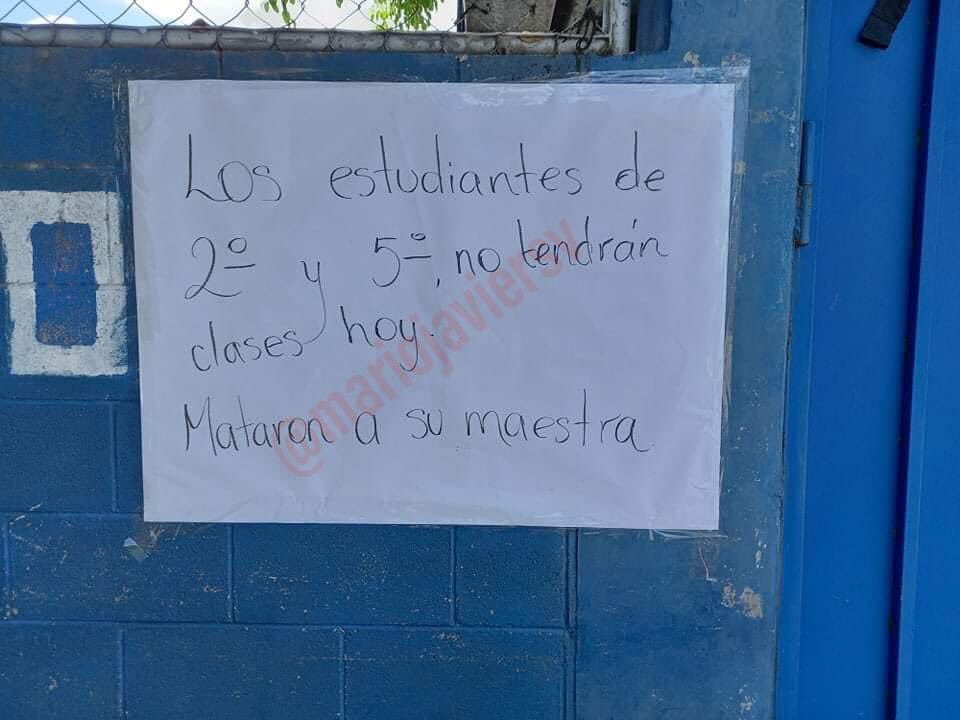 Los estudiantes de
2º y 5º, no tendrán
clases hoy.
Mataron a su maestra.
@mariojaviersv